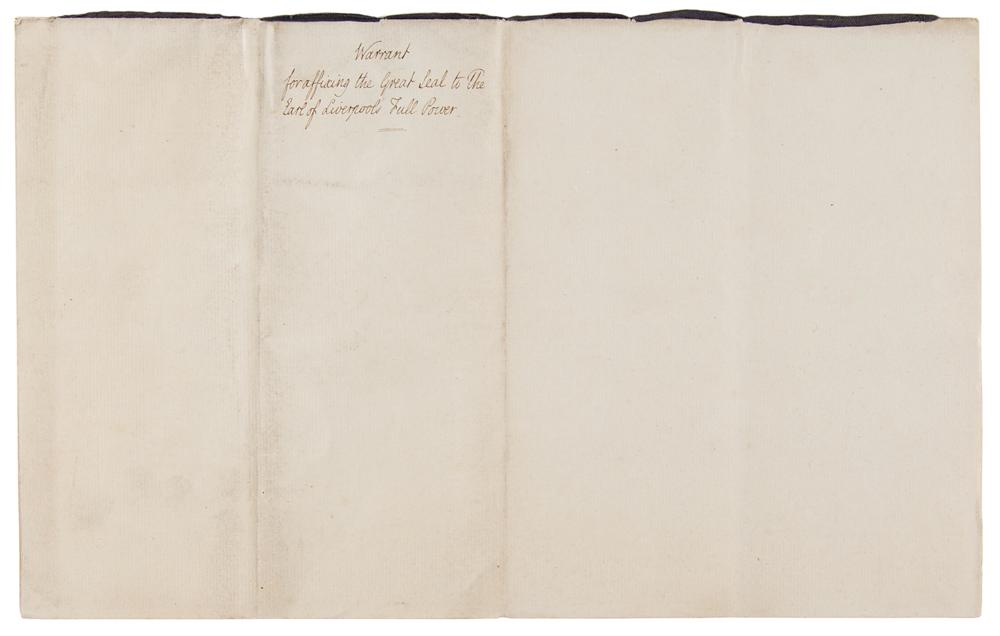 Warrant
for affixing the Great Seal to The
Earl of Liverpool's Full Power.